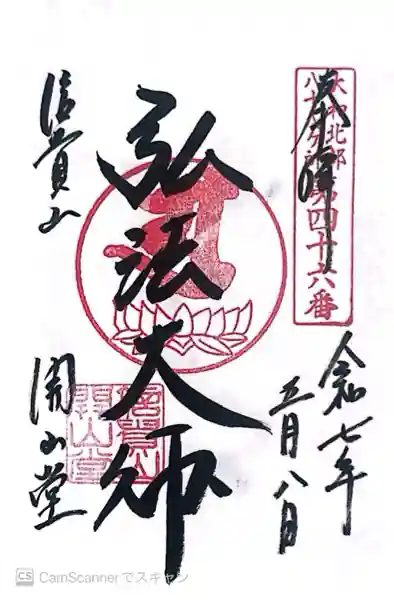 奉拝
大和北部
八十八ヶ所第四十六番
令和七年
五月八日
弘法大師
信貴山
開山堂
信貴山
開山堂
CS CamScannerでスキャン